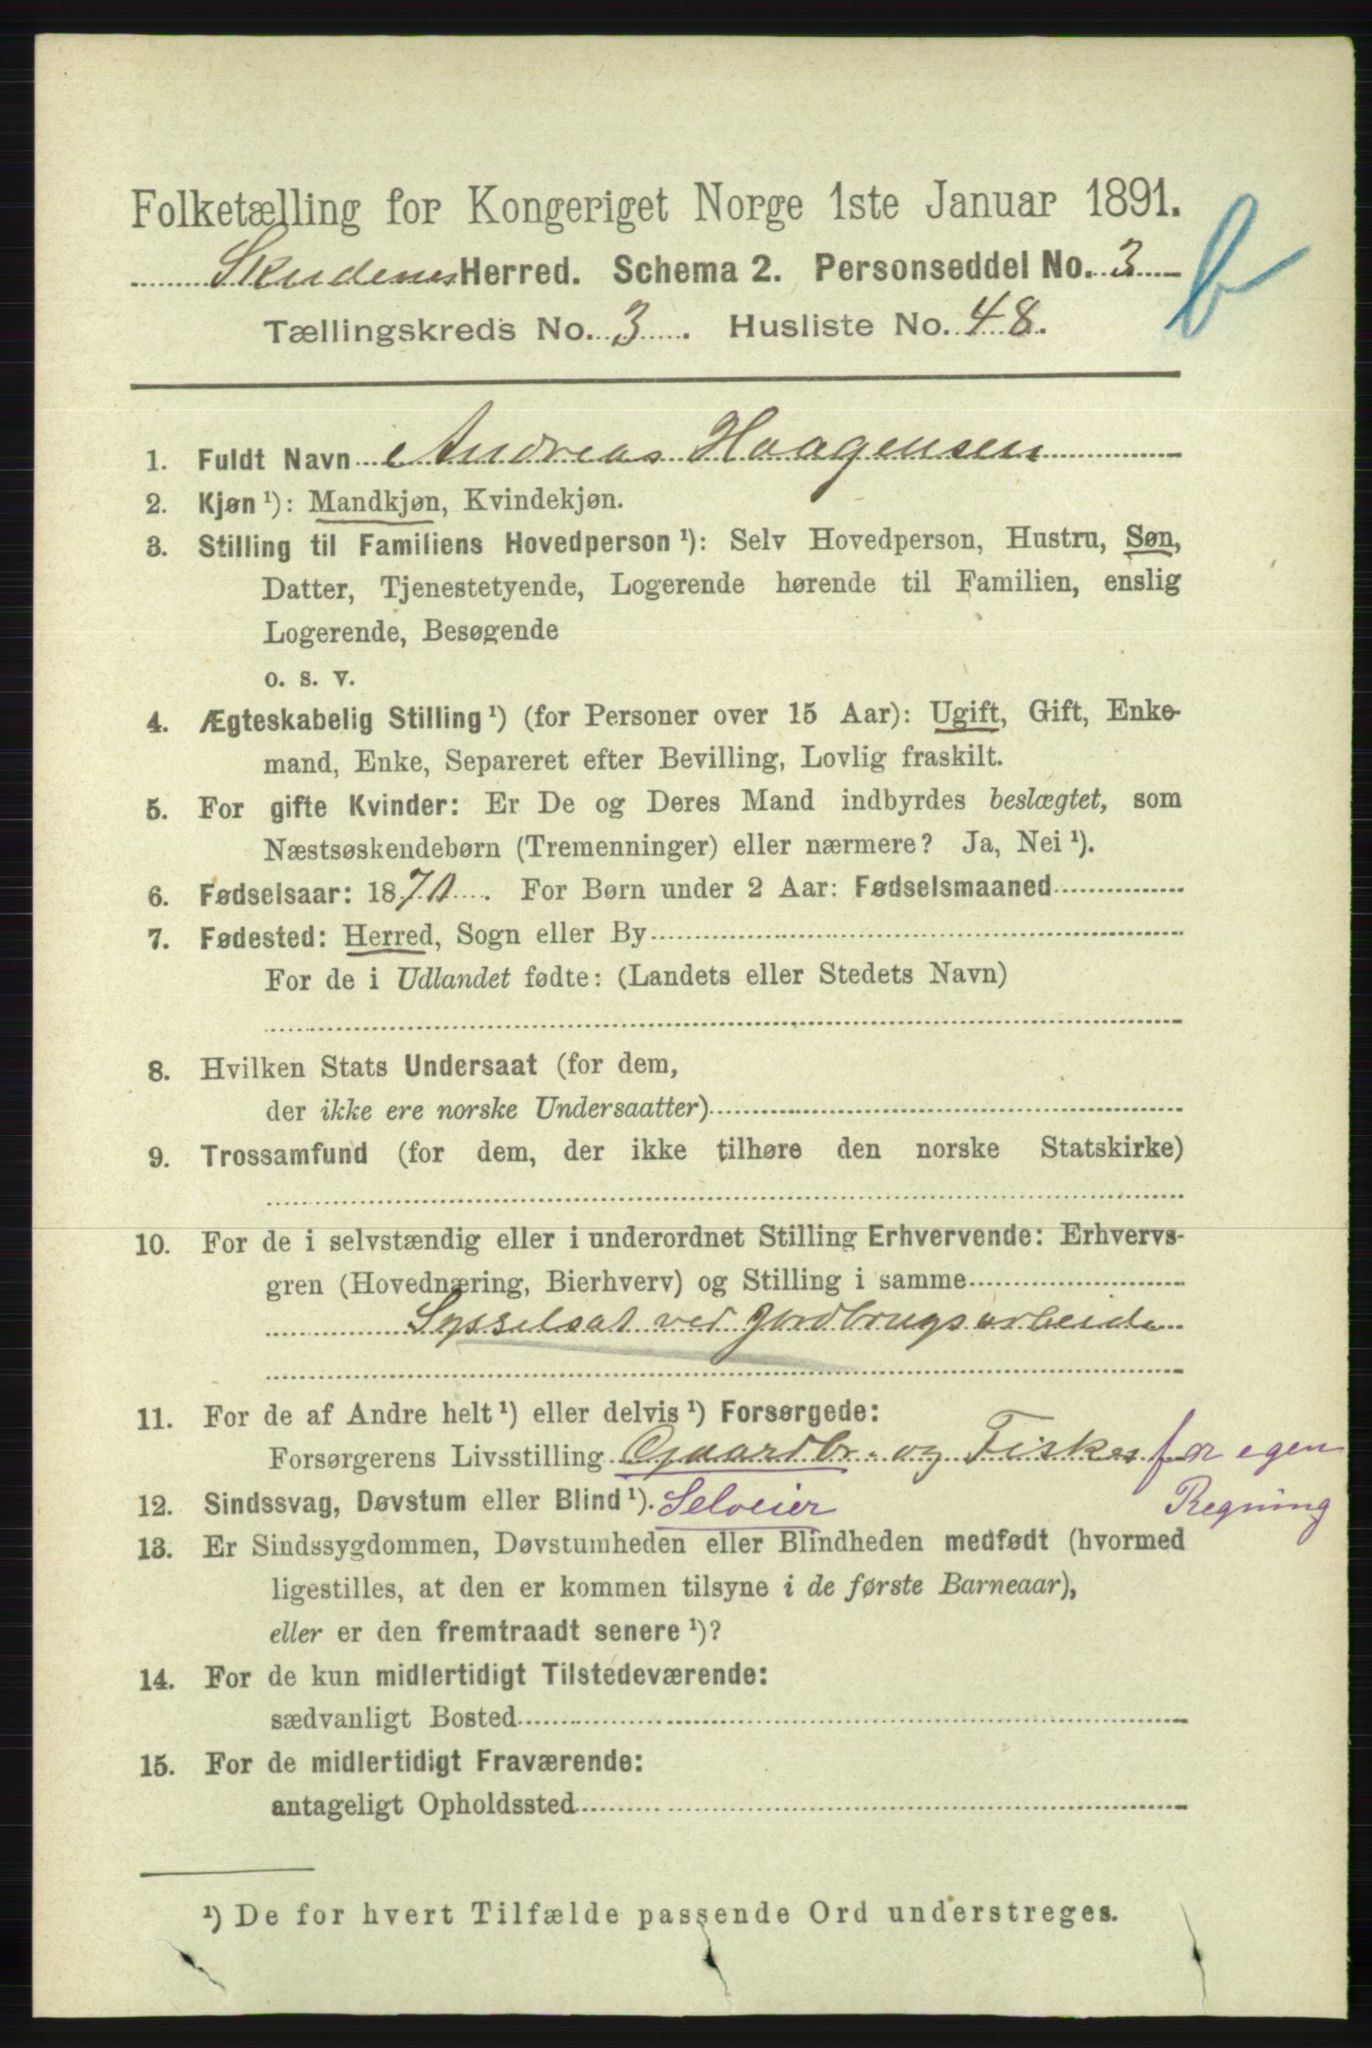 Folketælling for Kongeriget Norge 1ste Januar 1891.
Skudenes Herred. Schema 2. Personseddel No. 3
b
Tællingskreds No. 3. Husliste No. 48.
1. Fuldt Navn Andreas Haagensen
2. Kjøn ¹): Mandkjøn, Kvindekjøn.
3. Stilling til Familiens Hovedperson ¹): Selv Hovedperson, Hustru, Søn,
Datter, Tjenestetyende, Logerende hørende til Familien, enslig
Logerende, Besøgende
o. s. v.
4. Ægteskabelig Stilling ¹) (for Personer over 15 Aar): Ugift, Gift, Enke-
mand, Enke, Separeret efter Bevilling, Lovlig fraskilt.
5. For gifte Kvinder: Er De og Deres Mand indbyrdes beslægtet, som
Næstsøskendebørn (Tremenninger) eller nærmere? Ja, Nei ¹).
6. Fødselsaar: 1870. For Børn under 2 Aar: Fødselsmaaned
7. Fødested: Herred, Sogn eller By
For de i Udlandet fødte: (Landets eller Stedets Navn)
8. Hvilken Stats Undersaat (for dem,
der ikke ere norske Undersaatter)
9. Trossamfund (for dem, der ikke tilhøre den norske Statskirke)
10. For de i selvstændig eller i underordnet Stilling Erhvervende: Erhvervs-
gren (Hovednæring, Bierhverv) og Stilling i samme
Sysselsat ved Jordbrugsarbeide
11. For de af Andre helt ¹) eller delvis ¹) Forsørgede:
Forsørgerens Livsstilling Gaardbr. og Fisker for egen
Regning
12. Sindssvag, Døvstum eller Blind ¹). Selveier
13. Er Sindssygdommen, Døvstumheden eller Blindheden medfødt (hvormed
ligestilles, at den er kommen tilsyne i de første Barneaar),
eller er den fremtraadt senere ¹)?
14. For de kun midlertidigt Tilstedeværende:
sædvanligt Bosted
15. For de midlertidigt Fraværende:
antageligt Opholdssted
¹) De for hvert Tilfælde passende Ord understreges.